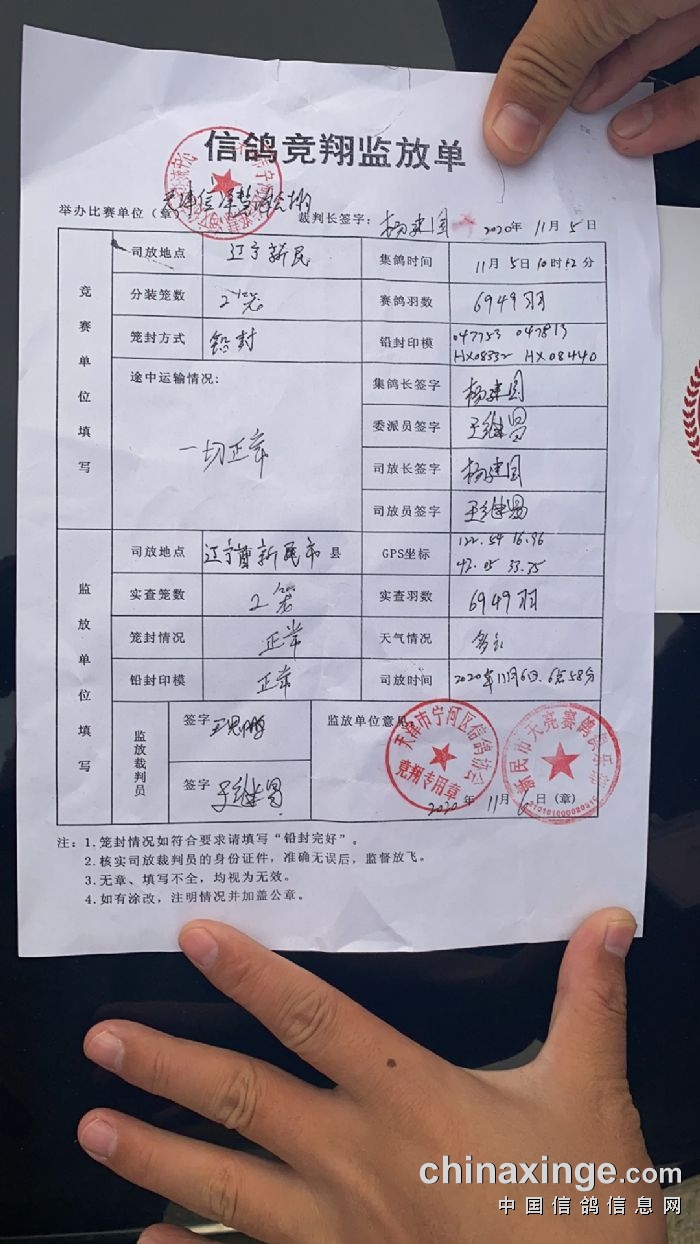 信鸽竞翔监放单
举办比赛单位（章） 裁判长签字： 杨建国 2020年 11月 5日
竞赛单位填写
司放地点 辽宁新民 集鸽时间 11月5日10时12分
分装笼数 2 赛鸽羽数 6949羽
笼封方式 铅封 铅封印模 047753 047813
HX08332 HX08440
途中运输情况： 集鸽长签字 杨建国
一切正常 委派员签字 王继昌
司放长签字 杨建国
司放员签字 王继昌
监放单位填写
司放地点 辽宁省新民市县 GPS坐标 122.54 16.96
42.05 33.75
实查笼数 2笼 实查羽数 6949羽
笼封情况 正常 天气情况 多云
铅封印模 正常 司放时间 2020年11月6日.6点58分
监放裁判员
签字 监放单位意见：
签字 王继昌
天津市宁河区信鸽协会
竞翔专用章
新民市天亮赛鸽俱乐部
2020年 11月 6日（章）
注：1.笼封情况如符合要求请填写“铅封完好”。
2.核实司放裁判员的身份证件，准确无误后，监督放飞。
3.无章、填写不全，均视为无效。
4.如有涂改，注明情况并加盖公章。
chinaxinge.com
中国信鸽信息网